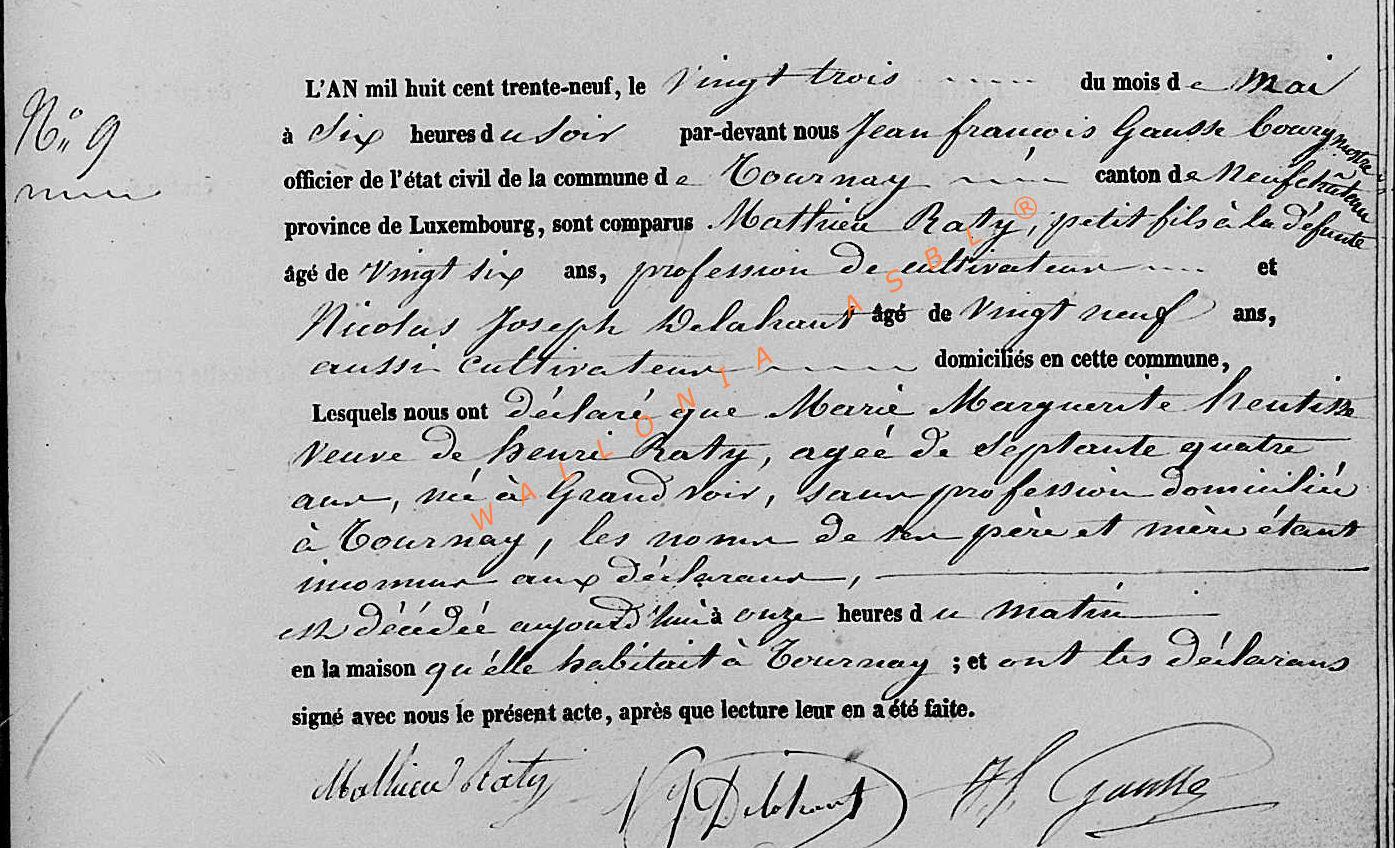 N° 9
L'AN mil huit cent trente-neuf, le vingt trois du mois de Mai
à Six heures du Soir par-devant nous Jean françois Gausse bourgmestre
officier de l'état civil de la commune de Tournay canton de Neufchâteau
province de Luxembourg, sont comparus Mathieu Raty, petit fils à la défunte
âgé de vingt six ans, profession de cultivateur et
Nicolas Joseph Delahaut âgé de vingt neuf ans,
aussi cultivateur domiciliés en cette commune,
Lesquels nous ont déclaré que Marie Marguerite
veuve de henri Raty, agée de septante quatre
ans, née à Grandvoir, sans profession domiciliée
à Tournay, les noms de ses père et mère étant
inconnus aux déclarans,
est décédée aujourd'hui à onze heures du matin
en la maison qu'elle habitait à Tournay ; et ont les déclarans
signé avec nous le présent acte, après que lecture leur en a été faite.
Mathieu Raty NJ Delahaut JF Gausse
WALLONIA ASBL ®